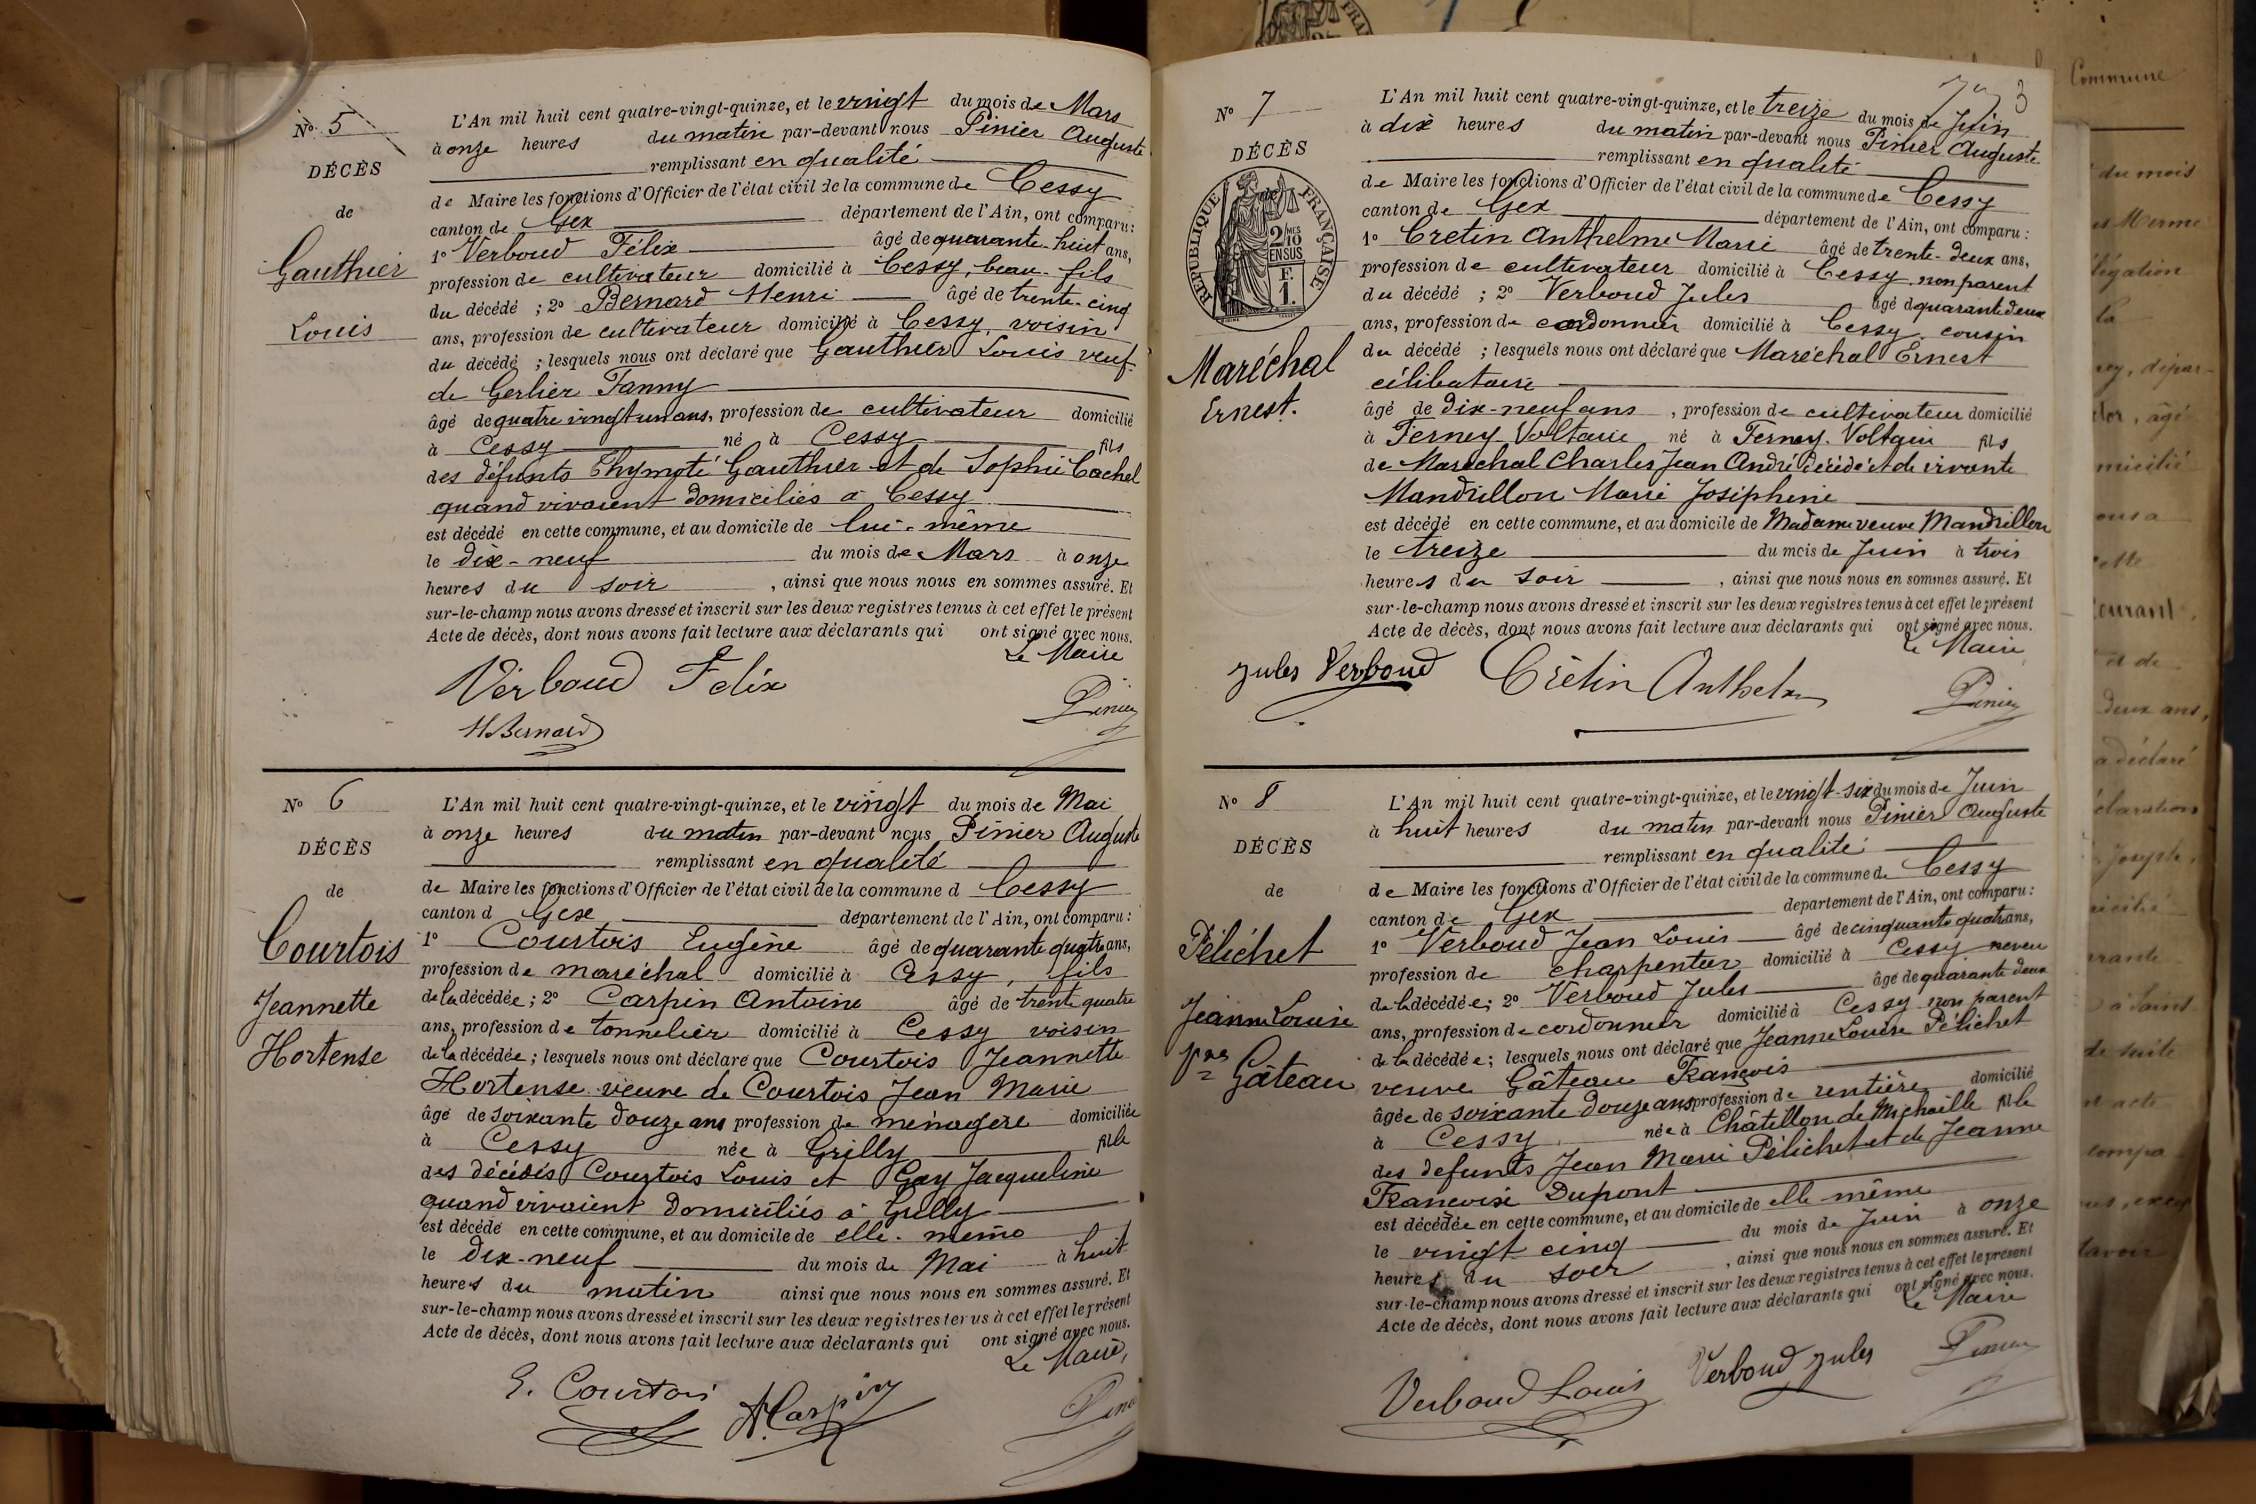 N° 5
DÉCÈS
de
Gauthier
Louis
L'An mil huit cent quatre-vingt-quinze, et le vingt du mois de Mars
à onze heures du matin par-devant nous Pinier Auguste
remplissant en qualité
de Maire les fonctions d'Officier de l'état civil de la commune de Cessy
canton de Gex département de l'Ain, ont comparu :
1° Verboud Félix âgé de quarante-huit ans,
profession de cultivateur domicilié à Cessy, beau-fils
du décédé ; 2° Bernard Henri âgé de trente-cinq
ans, profession de cultivateur domicilié à Cessy, voisin
du décédé ; lesquels nous ont déclaré que Gauthier Louis veuf
de Gerlier Fanny
âgé de quatre vingt un ans, profession de cultivateur domicilié
à Cessy né à Cessy fils
des défunts Thymoté Gauthier et de Sophie Cachel
quand vivaient domiciliés à Cessy
est décédé en cette commune, et au domicile de lui-même
le dix-neuf du mois de Mars à onze
heures du soir, ainsi que nous nous en sommes assuré. Et
sur-le-champ nous avons dressé et inscrit sur les deux registres tenus à cet effet le présent
Acte de décès, dont nous avons fait lecture aux déclarants qui ont signé avec nous.
Le Maire
Verboud Felix
Pinier
H Bernard
N° 6
DÉCÈS
de
Courtois
Jeannette
Hortense
L'An mil huit cent quatre-vingt-quinze, et le vingt du mois de Mai
à onze heures du matin par-devant nous Pinier Auguste
remplissant en qualité
de Maire les fonctions d'Officier de l'état civil de la commune d Cessy
canton d Gex département de l'Ain, ont comparu :
1° Courtois Eugène âgé de quarante quatre ans,
profession de maréchal domicilié à Cessy, fils
de la décédée ; 2° Carpin Antoine âgé de trente quatre
ans, profession de tonnelier domicilié à Cessy voisin
de la décédée ; lesquels nous ont déclaré que Courtois Jeannette
Hortense veuve de Courtois Jean Marie
âgé de soixante douze ans profession de ménagère domiciliée
à Cessy née à Grilly fille
des décédés Courtois Louis et Gay Jacqueline
quand vivaient domiciliés à Grilly
est décédé en cette commune, et au domicile de elle-même
le dix-neuf du mois de Mai à huit
heures du matin ainsi que nous nous en sommes assuré. Et
sur-le-champ nous avons dressé et inscrit sur les deux registres tenus à cet effet le présent
Acte de décès, dont nous avons fait lecture aux déclarants qui ont signé avec nous.
Le Maire,
E. Courtois A. Carpin
N° 7
DÉCÈS
de
RÉPUBLIQUE FRANÇAISE
2/10 MES
EN SUS
F.
1.
Maréchal
Ernest.
3
L'An mil huit cent quatre-vingt-quinze, et le treize du mois de Juin
à dix heures du matin par-devant nous Pinier Auguste
remplissant en qualité
de Maire les fonctions d'Officier de l'état civil de la commune de Cessy
canton de Gex département de l'Ain, ont comparu :
1° Cretin Anthelme Marie âgé de trente-deux ans,
profession de cultivateur domicilié à Cessy, non parent
du décédé ; 2° Verboud Jules âgé d quarante deux
ans, profession de cordonnier domicilié à Cessy, cousin
du décédé ; lesquels nous ont déclaré que Maréchal Ernest
célibataire
âgé de dix-neuf ans, profession de cultivateur domicilié
à Ferney Voltaire né à Ferney-Voltaire fils
de Maréchal Charles Jean André décédé et de vivante
Mandrillon Marie Joséphine
est décédé en cette commune, et au domicile de Madame veuve Mandrillon
le treize du mois de Juin à trois
heures du soir, ainsi que nous nous en sommes assuré. Et
sur-le-champ nous avons dressé et inscrit sur les deux registres tenus à cet effet le présent
Acte de décès, dont nous avons fait lecture aux déclarants qui ont signé avec nous.
Le Maire
Jules Verboud Crétin Anthelm
Pinier
N° 8
DÉCÈS
de
Pélichet
Jeanne Louise
Gâteau
L'An mil huit cent quatre-vingt-quinze, et le vingt-six du mois de Juin
à huit heures du matin par-devant nous Pinier Auguste
remplissant en qualité
de Maire les fonctions d'Officier de l'état civil de la commune de Cessy
canton de Gex département de l'Ain, ont comparu :
1° Verboud Jean Louis âgé de cinquante quatre ans,
profession de charpentier domicilié à Cessy neveu
de la décédée ; 2° Verboud Jules âgé de quarante deux
ans, profession de cordonnier domicilié à Cessy non parent
de la décédée ; lesquels nous ont déclaré que Jeanne Louise Pélichet
veuve Gâteau François
âgée de soixante douze ans profession de rentière domicilié
à Cessy née à Châtillon de Michaille fille
des defunts Jean Marie Pélichet et de Jeanne
Françoise Dupont
est décédée en cette commune, et au domicile de elle même
le vingt cinq du mois de Juin à onze
heures du soir, ainsi que nous nous en sommes assuré. Et
sur-le-champ nous avons dressé et inscrit sur les deux registres tenus à cet effet le présent
Acte de décès, dont nous avons fait lecture aux déclarants qui ont signé avec nous.
Le Maire
Verboud Louis Verboud Jules
Pinier
Commune
du mois